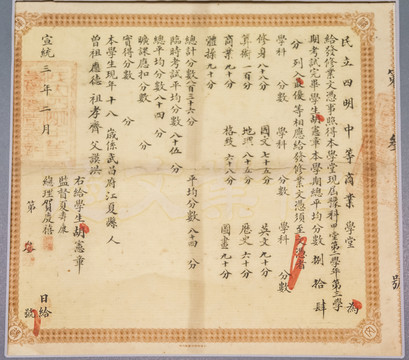 民立四明中等商業學堂 為
給發修業文憑事照得本學堂現屆預科甲堂第二學年第二學
期考試完畢學生胡憲章本學期總平均分數捌拾肆
分列入最優等相應給發修業文憑須至文憑者
學科 分數 學科 分數 學科 分數
修身 八十八分 國文 七十五分 英文 九十分
算術 一百分 地輿 八十五分 歷史 六十分
商業 九十分 格致 六十八分 圖畫 九十分
體操 九十分
總計分數 八百三十六分 平均分數 八十四分
臨時考試平均分數 八十伍分
總平均分數 八十四分
曠課應扣分數 分
實得分數 分
本學生現年十八歲係武昌府江夏縣人
曾祖應德 祖孝儕 父誤洪
右給學生胡憲章
監督夏壽康
總理賀慶禧
宣統三年二月 日給
第 號